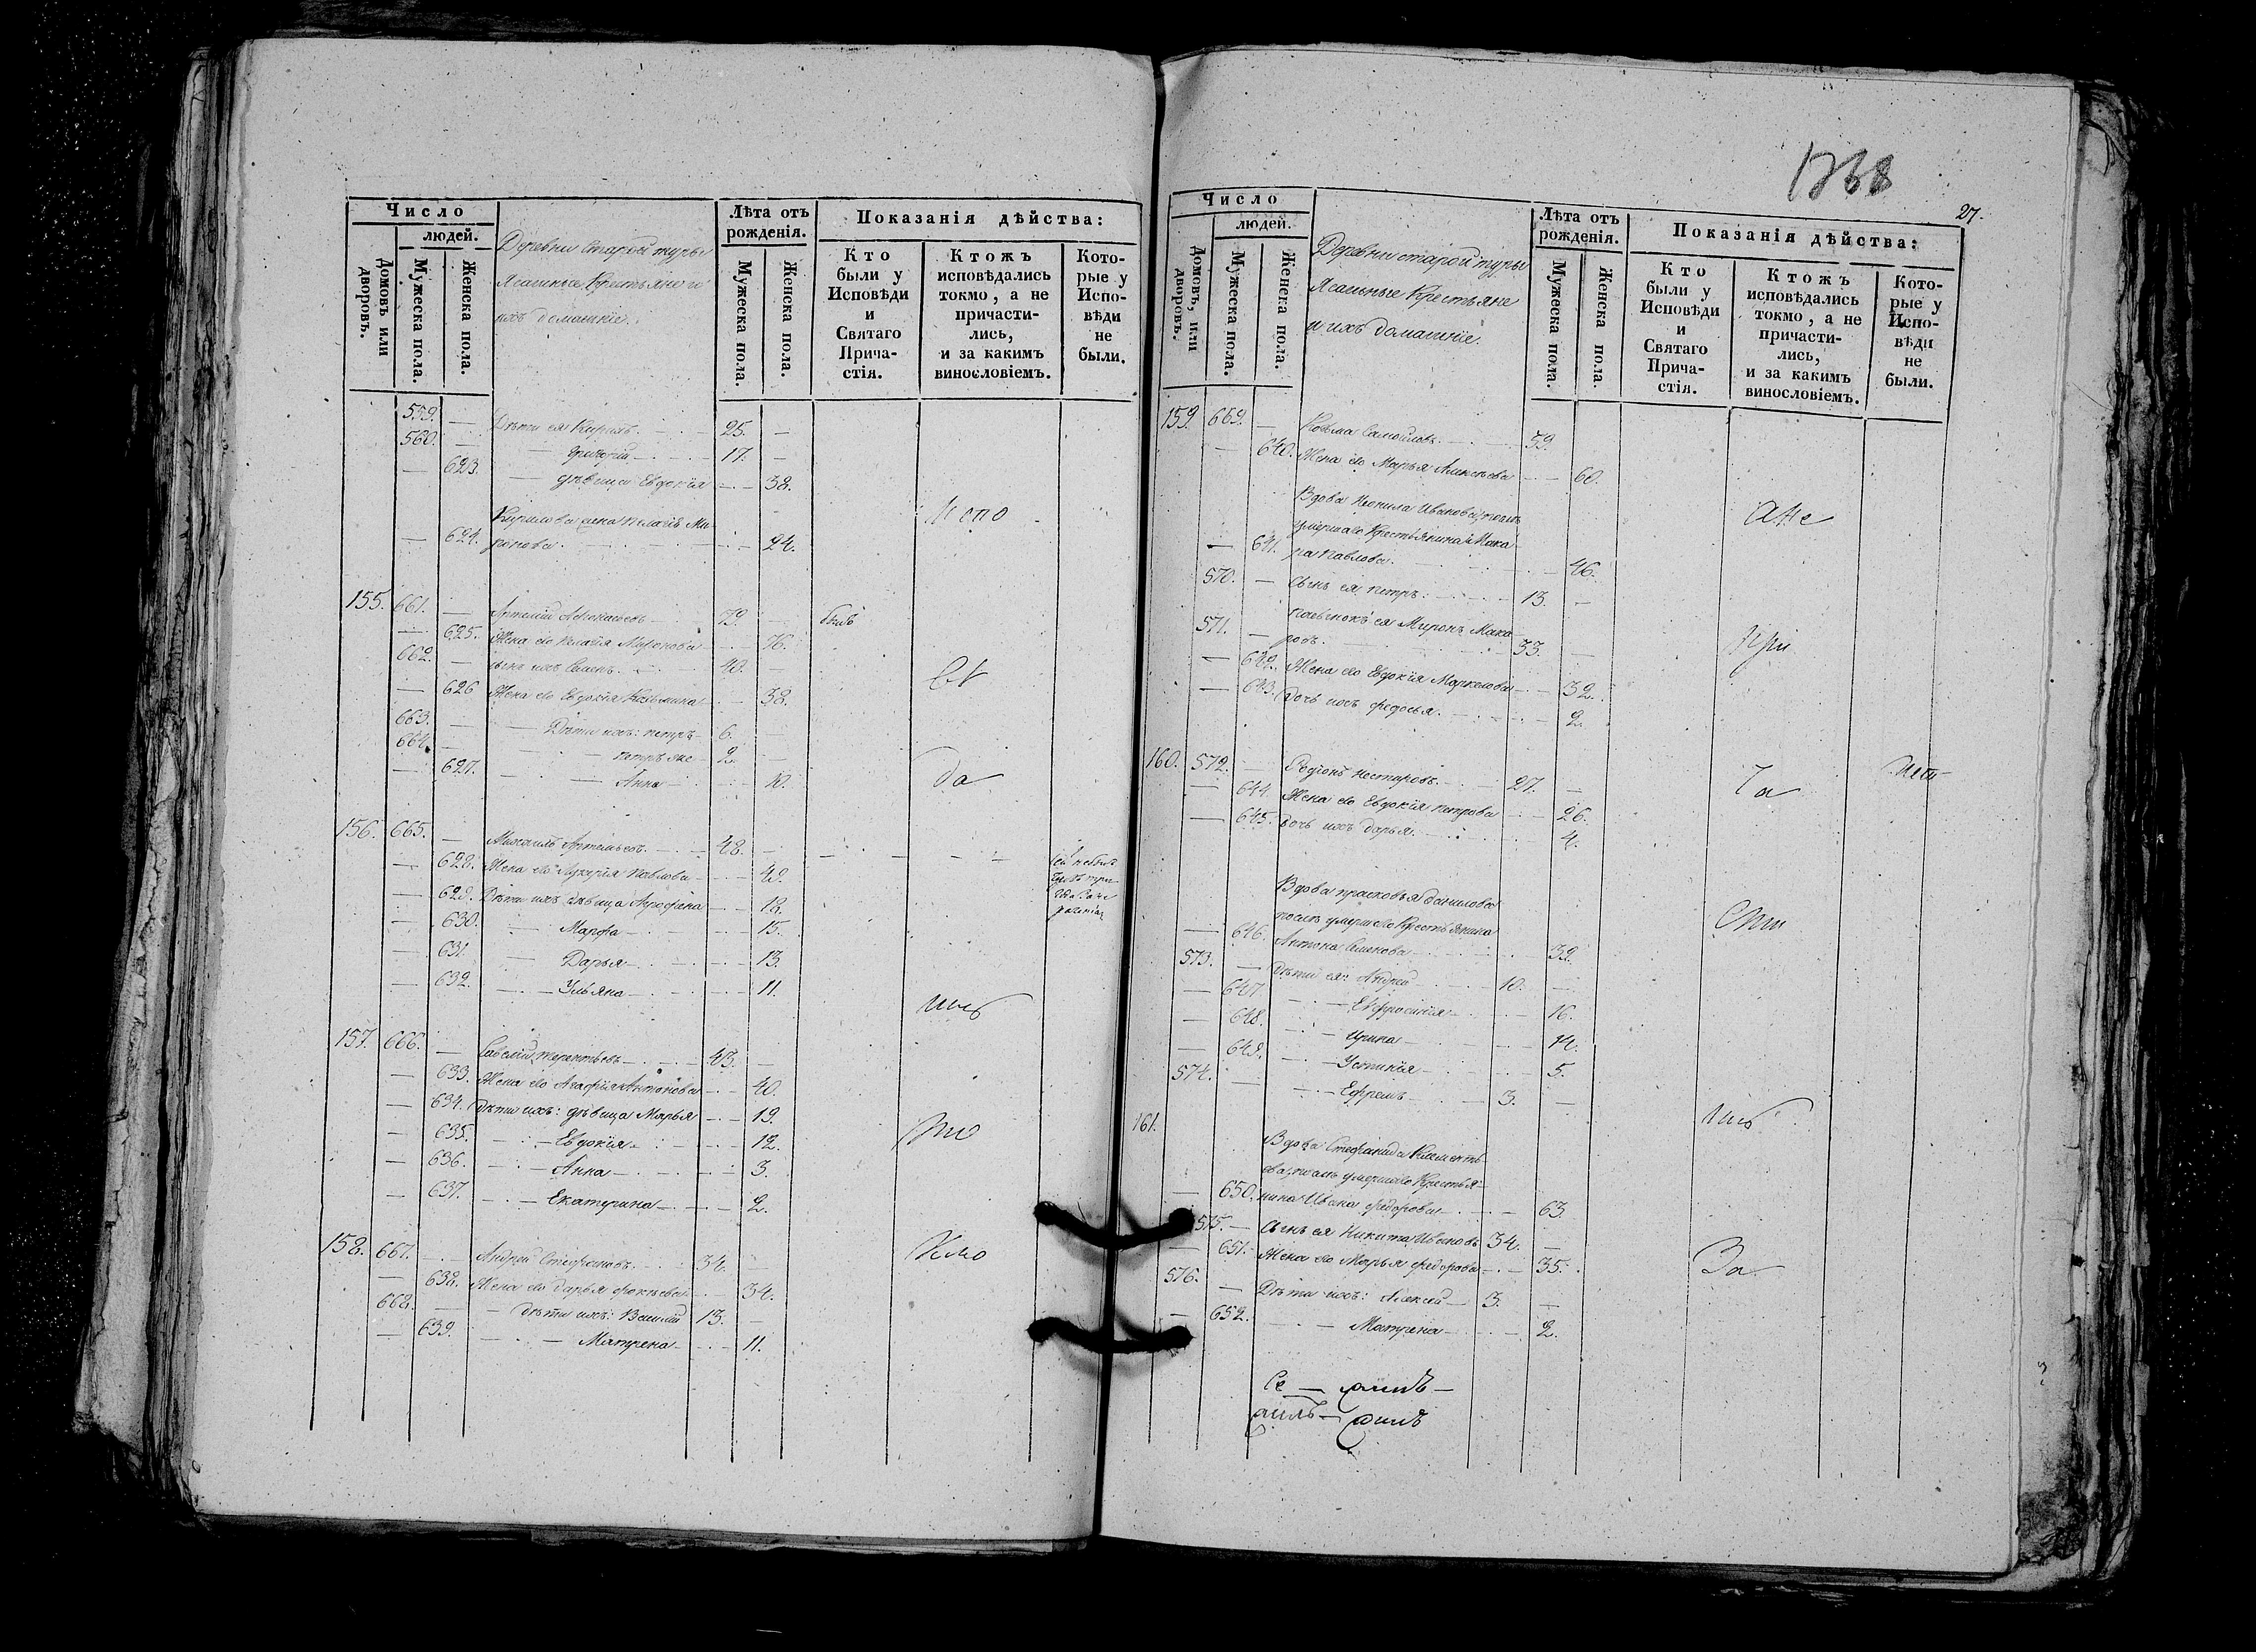 Число
людей.
Домовъ или дворовъ.
Мужеска пола.
Женска пола.
Деревни Старой туры
Ясашные Крестьяне и
ихъ домашніе.
Лѣта отъ рожденія.
Мужеска пола.
Женска пола.
Показанія дѣйства:
Кто были у Исповѣди и Святаго Причастія.
Ктожъ исповѣдались токмо, а не причастились, и за какимъ винословіемъ.
Которые у Исповѣди не были.
559. — Дѣти ея Кирилъ 25. —
560. — Григорій 17. —
— 623. — дѣвица Евдокія — 38.
Кирилова жена Пелагія Ми-
— 624. ронова — 24.
Испо
155. 661. — Артемій Афонасьевъ 79. — былъ
— 625. Жена его Пелагія Миронова — 76.
662. — сынъ ихъ Семенъ 40. —
— 626 Жена его Евдокія Козьмина — 38.
663. — Дѣти ихъ: петръ 6. —
664. — петръ же 2. —
— 627. — Анна — 10.
да
156. 665. — Михаилъ Артемьевъ 48. —
— 628. Жена его Лукерія Павлова — 49.
— 629. Дѣти ихъ дѣвица Агрофена — 18.
— 630. — Марфа — 15.
— 631. — Дарья — 13.
— 632. — Ульяна — 11.
157. 666. — Савелій терентьевъ 43. —
— 633. Жена его Агафія Антонова — 40.
— 634. дѣти ихъ: дѣвица Марья — 19.
— 635. — Евдокія — 12.
— 636. — Анна — 3.
— 637. — Екатерина — 2.
158. 667. — Андрей Стефановъ 34. —
— 638. Жена его дарья фокѣева — 34.
668. — дѣти ихъ: Василій 13. —
— 639. — Матрена — 11.
1368
27.
Число
людей.
Домовъ, или дворовъ.
Мужеска пола.
Женска пола.
Деревни старой туры
Ясашные Крестьяне
и ихъ домашніе.
Лѣта отъ рожденія.
Мужеска пола.
Женска пола.
Показанія дѣйства:
Кто были у Исповѣди и Святаго Причастія.
Ктожъ исповѣдались токмо, а не причастились, и за какимъ винословіемъ.
Которые у Исповѣди не были.
159. 669. — Козьма Самойловъ 59.
— 640. Жена его Марья Алексѣева — 60.
Вдова Неонила Иванова, послѣ
умершаго Крестьянина Мака-
— 641. ра Павлова — 46.
а Не
570. — сынъ ея петръ 13. —
пасынокъ ея Миронъ Мака-
571. — ровъ 33. —
При
— 642. Жена его Евдокія Маркелова — 32.
— 643. дочь ихъ федосья — 2.
160. 572. — Родіонъ Нестеровъ 27. —
— 644. Жена его Евдокія петрова — 26.
— 645. дочь ихъ дарья — 4.
ча
Вдова прасковья данилова
послѣ умершаго Крестьянина
— 646. Антона Семенова — 39.
573. — дѣти ея: Андрей 10. —
— 647 — Ефросинія — 16.
— 648. — Ирина — 14.
— 649. — Устинія — 5.
574. — Ефремъ 3. —
161.
Вдова Стефанида Клементь-
ева, послѣ умершаго Крестья-
— 650. нина Ивана федорова — 63.
575. — сынъ ея Никита Ивановъ 34. —
— 651. Жена его Марья федорова — 35.
За
576. — Дѣти ихъ: Алексѣй 3. —
— 652. — Матрена — 2.